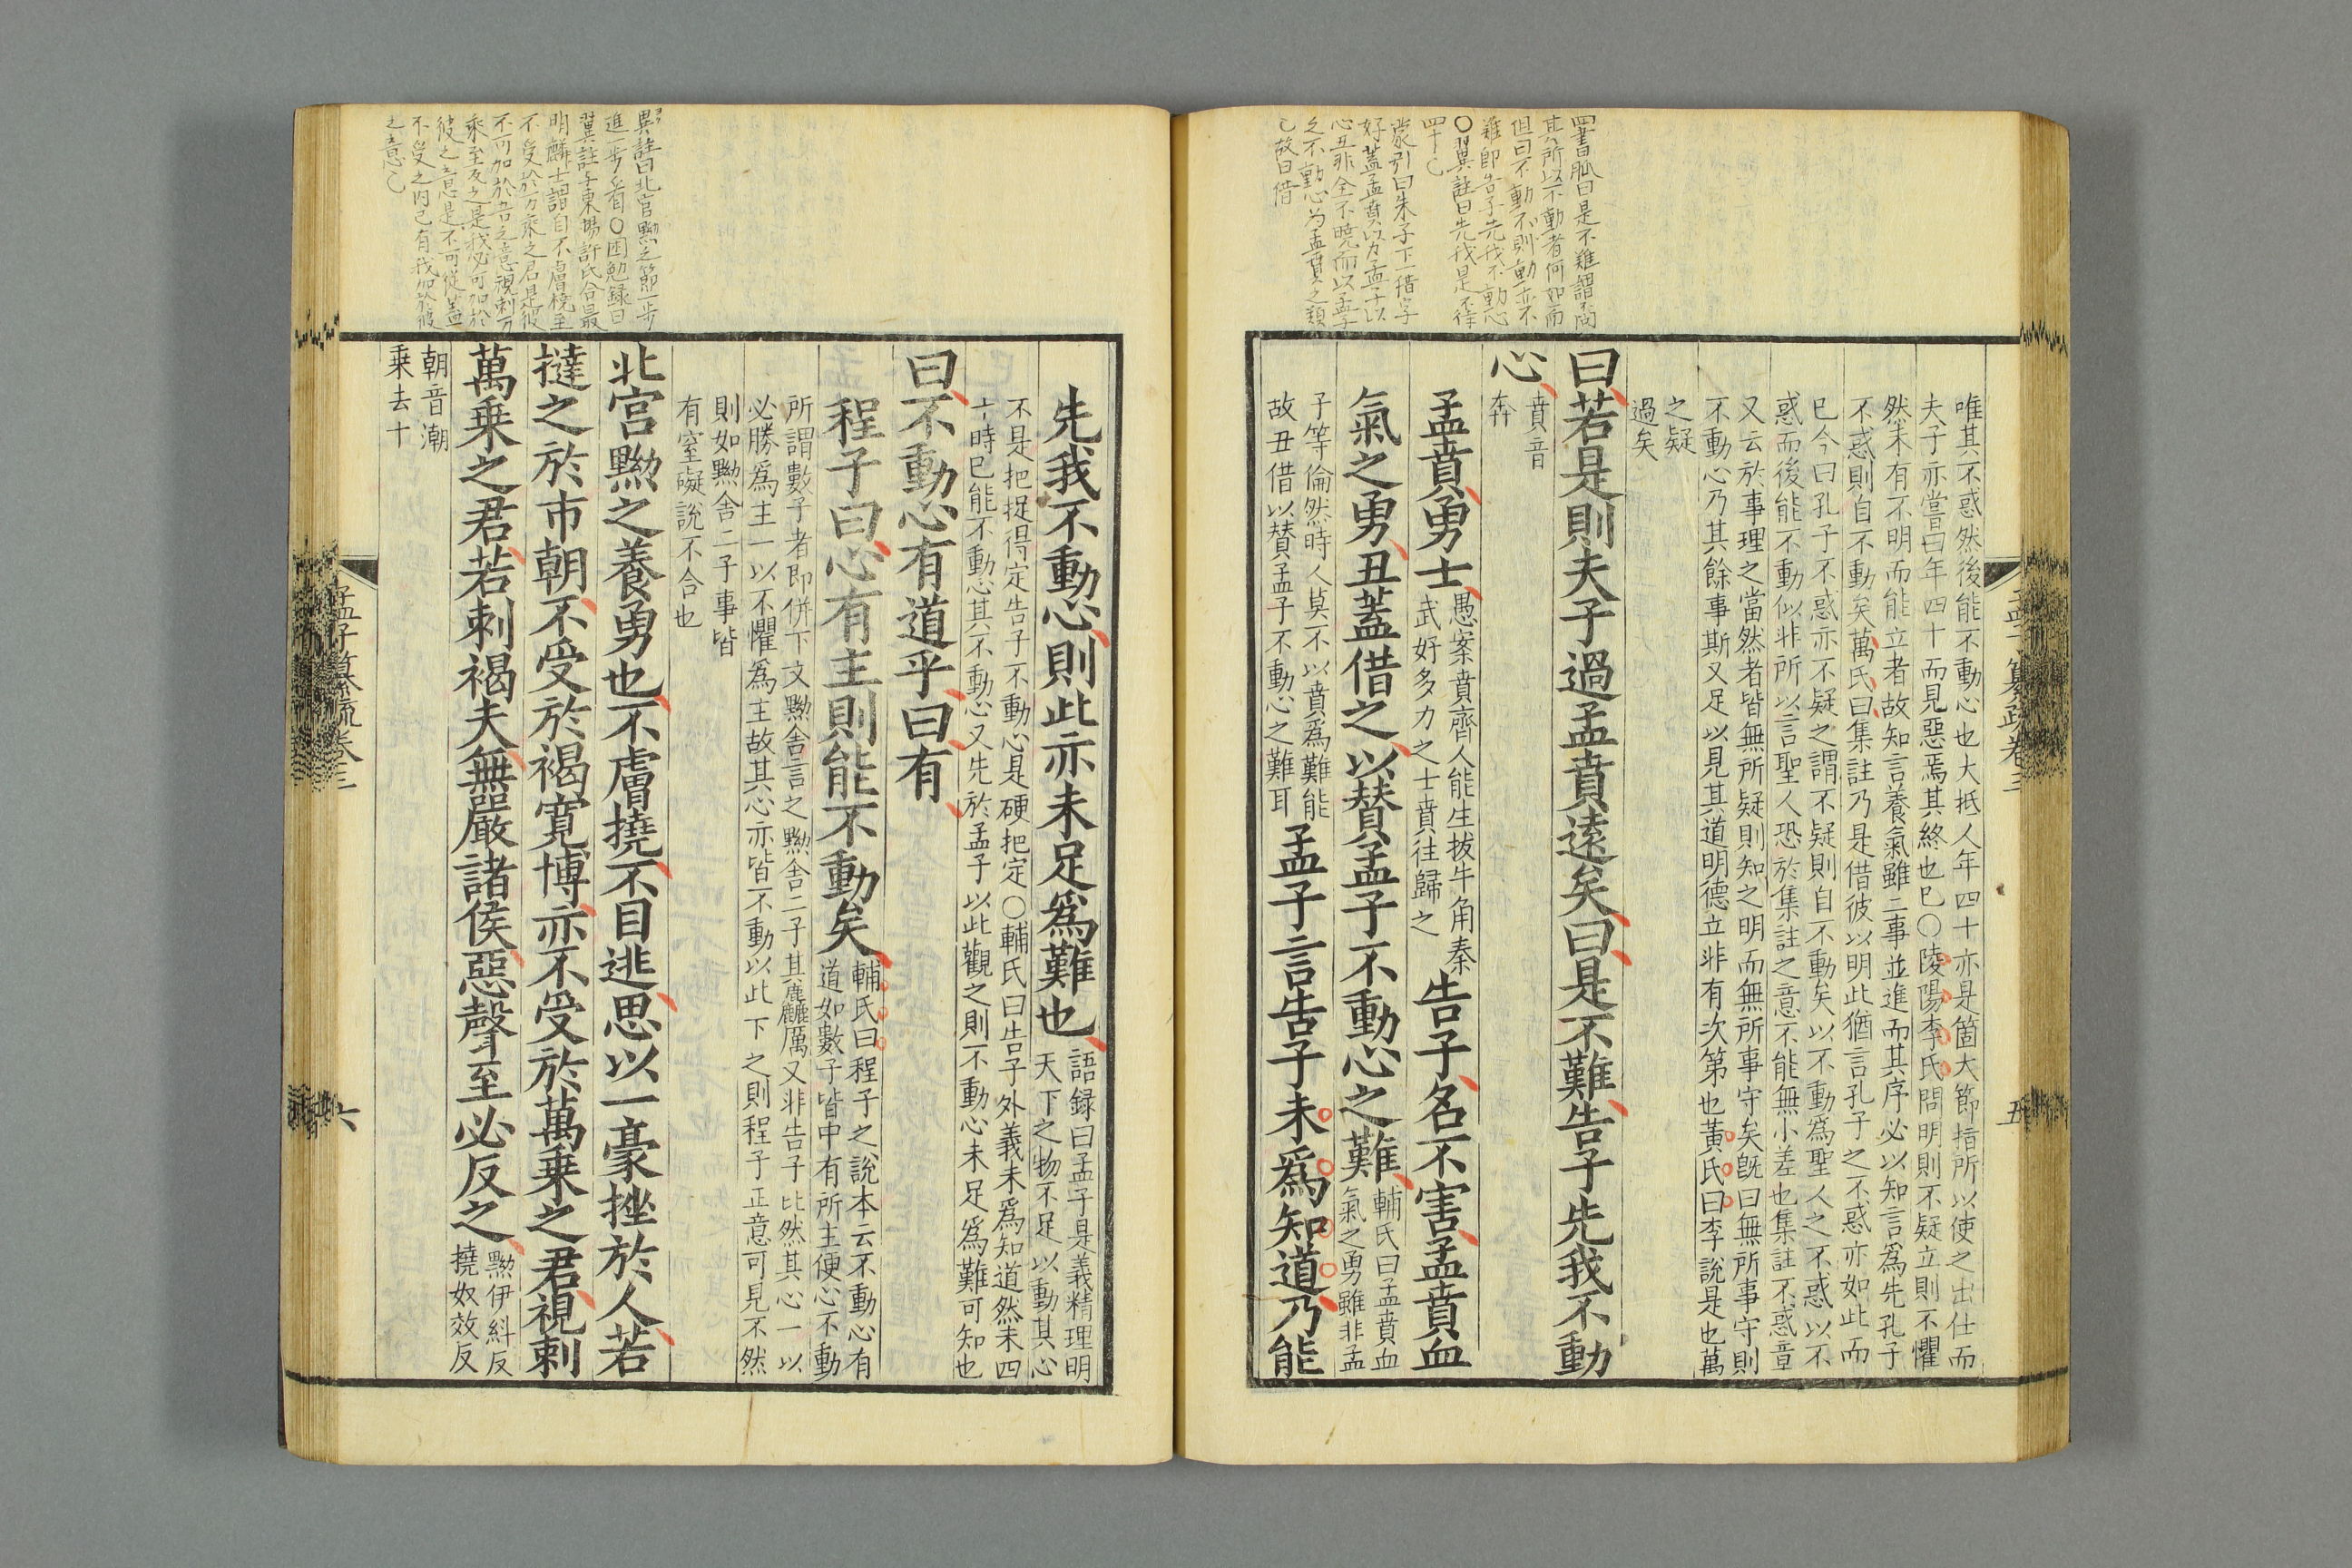 四書脈曰是不難謂不問
其所以不動者何如而
但曰不動不則動亦不
難即告子先我不動心
〇翼註曰先我是不待
四十已
蒙引曰朱子下一借字
好蓋孟賁以力孟子以
心丑非全不曉而以孟子
之不動心为孟賁之類
已故曰借
唯其不惑然後能不動心也大抵人年四十亦是箇大節指所以使之出仕而
夫子亦嘗曰年四十而見惡焉其終也已〇陵陽李氏問明則不疑立則不懼
然未有不明而能立者故知言養氣雖二事並進而其序必以知言爲先孔子
不惑則自不動矣萬氏曰集註乃是借彼以明此猶言孔子之不惑亦如此而
已今曰孔子不惑亦不疑之謂不疑則自不動矣以不動爲聖人之不惑以不
惑而後能不動似非所以言聖人恐於集註之意不能無小差也集註不惑章
又云於事理之當然者皆無所疑則知之明而無所事守矣旣曰無所事守則
不動心乃其餘事斯又足以見其道明德立非有次第也黃氏曰李說是也萬
之疑
過矣
曰若是則夫子過孟賁遠矣曰是不難告子先我不動
心
賁音
奔
孟賁勇士
愚案賁齊人能生拔牛角秦
武好多力之士賁往歸之
告子名不害孟賁血
氣之勇丑蓋借之以贊孟子不動心之難
輔氏曰孟賁血
氣之勇雖非孟
子等倫然時人莫不以賁爲難能
故丑借以贊孟子不動心之難耳
孟子言告子未爲知道乃能
孟子纂疏卷三
五
異註曰北宮黝之節一步
進一步看〇困勉録曰
翼註与東場許氏合最
明麟士謂自不膚橈至
不受於万乘之君是彼
不可加於吾之意視刺万
乘至反之是我必可加於
彼之意是不可從蓋
不受之內已有我加於彼
之意已
先我不動心則此亦未足爲難也
語録曰孟子是義精理明
天下之物不足以動其心
不是把捉得定告子不動心是硬把定〇輔氏曰告子外義未爲知道然未四
十時已能不動心其不動心又先於孟子以此觀之則不動心未足爲難可知也
曰不動心有道乎曰有
程子曰心有主則能不動矣
輔氏曰程子之說本云不動心有
道如數子皆中有所主便心不動
所謂數子者即併下文黝舍言之黝舍二子其麤厲又非告子比然其心一以
必勝爲主一以不懼爲主故其心亦皆不動以此下之則程子正意可見不然
則如黝舍二子事皆
有窒礙說不合也
北宮黝之養勇也不膚撓不目逃思以一豪挫於人若
撻之於市朝不受於褐寬博亦不受於萬乘之君視刺
萬乘之君若刺褐夫無嚴諸侯惡聲至必反之
黝伊糾反
撓奴效反
朝音潮
乘去十
孟子纂疏卷三
六